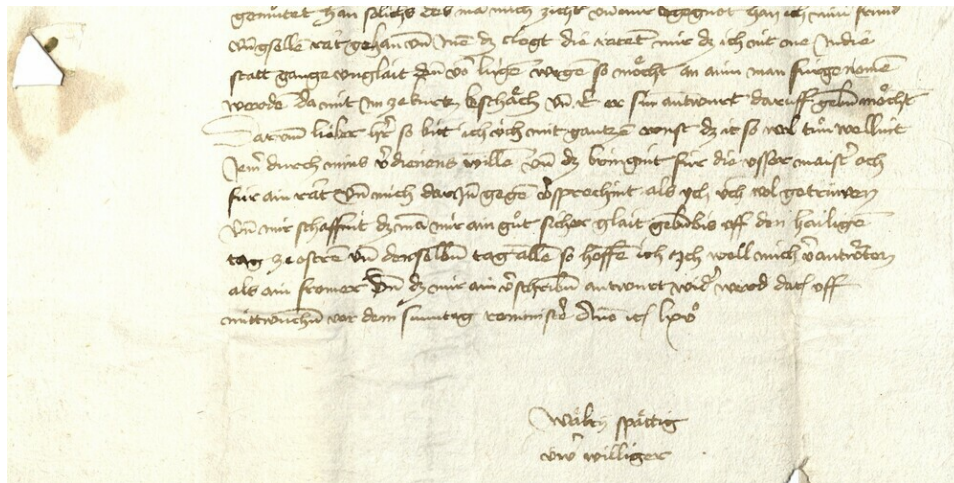 gemutet han solichs des ma mich zicht vn mir begegnot han ich min frund
vn gselle rat gehan vn in dz clegt die ratet mir dz ich nit me in die
statt gange vnglait den vo luge wege so möcht an ainn man fürgenomē
werde da mit im ze kurtz beschäch vn er sin antwurt daruff gebn möcht
Darum lieber her so bitt ich vch mit gantze ernst dz ir so wol tun wellint
Jem durch mins v̄dienens wille vn dz bringint für die vsser maist och
für ain rat vn mich dar Jn gege v̄sprechint als ich vch wol getruwen
vn mir schaffint dz ma mir ain gůt sicher glait geb bis vff den hailigē
tag ze ostre vn denselbn tag allen so hoffe ich ich woll mich v̄antwrten
als ain fromer vn dz mir ain v̄schribn antwurt wid werd dat vff
mittwuchn vor dem sunntag reminisc̄e Anno
wälti spättig
vw̄ williger